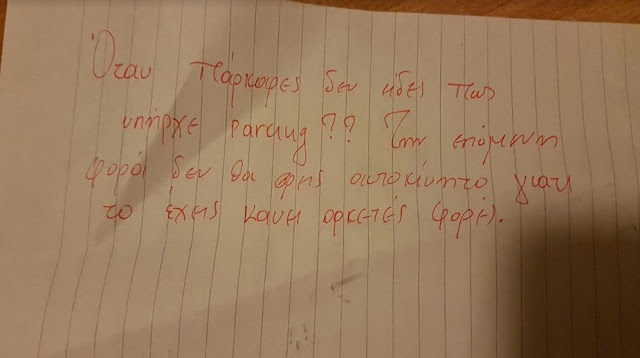 Όταν πάρκαρες δεν είδες πως
υπήρχε parking?? Την επόμενη
φορά δεν θα βρης αυτοκίνητο γιατι
το έχεις κανει αρκετές φορές.